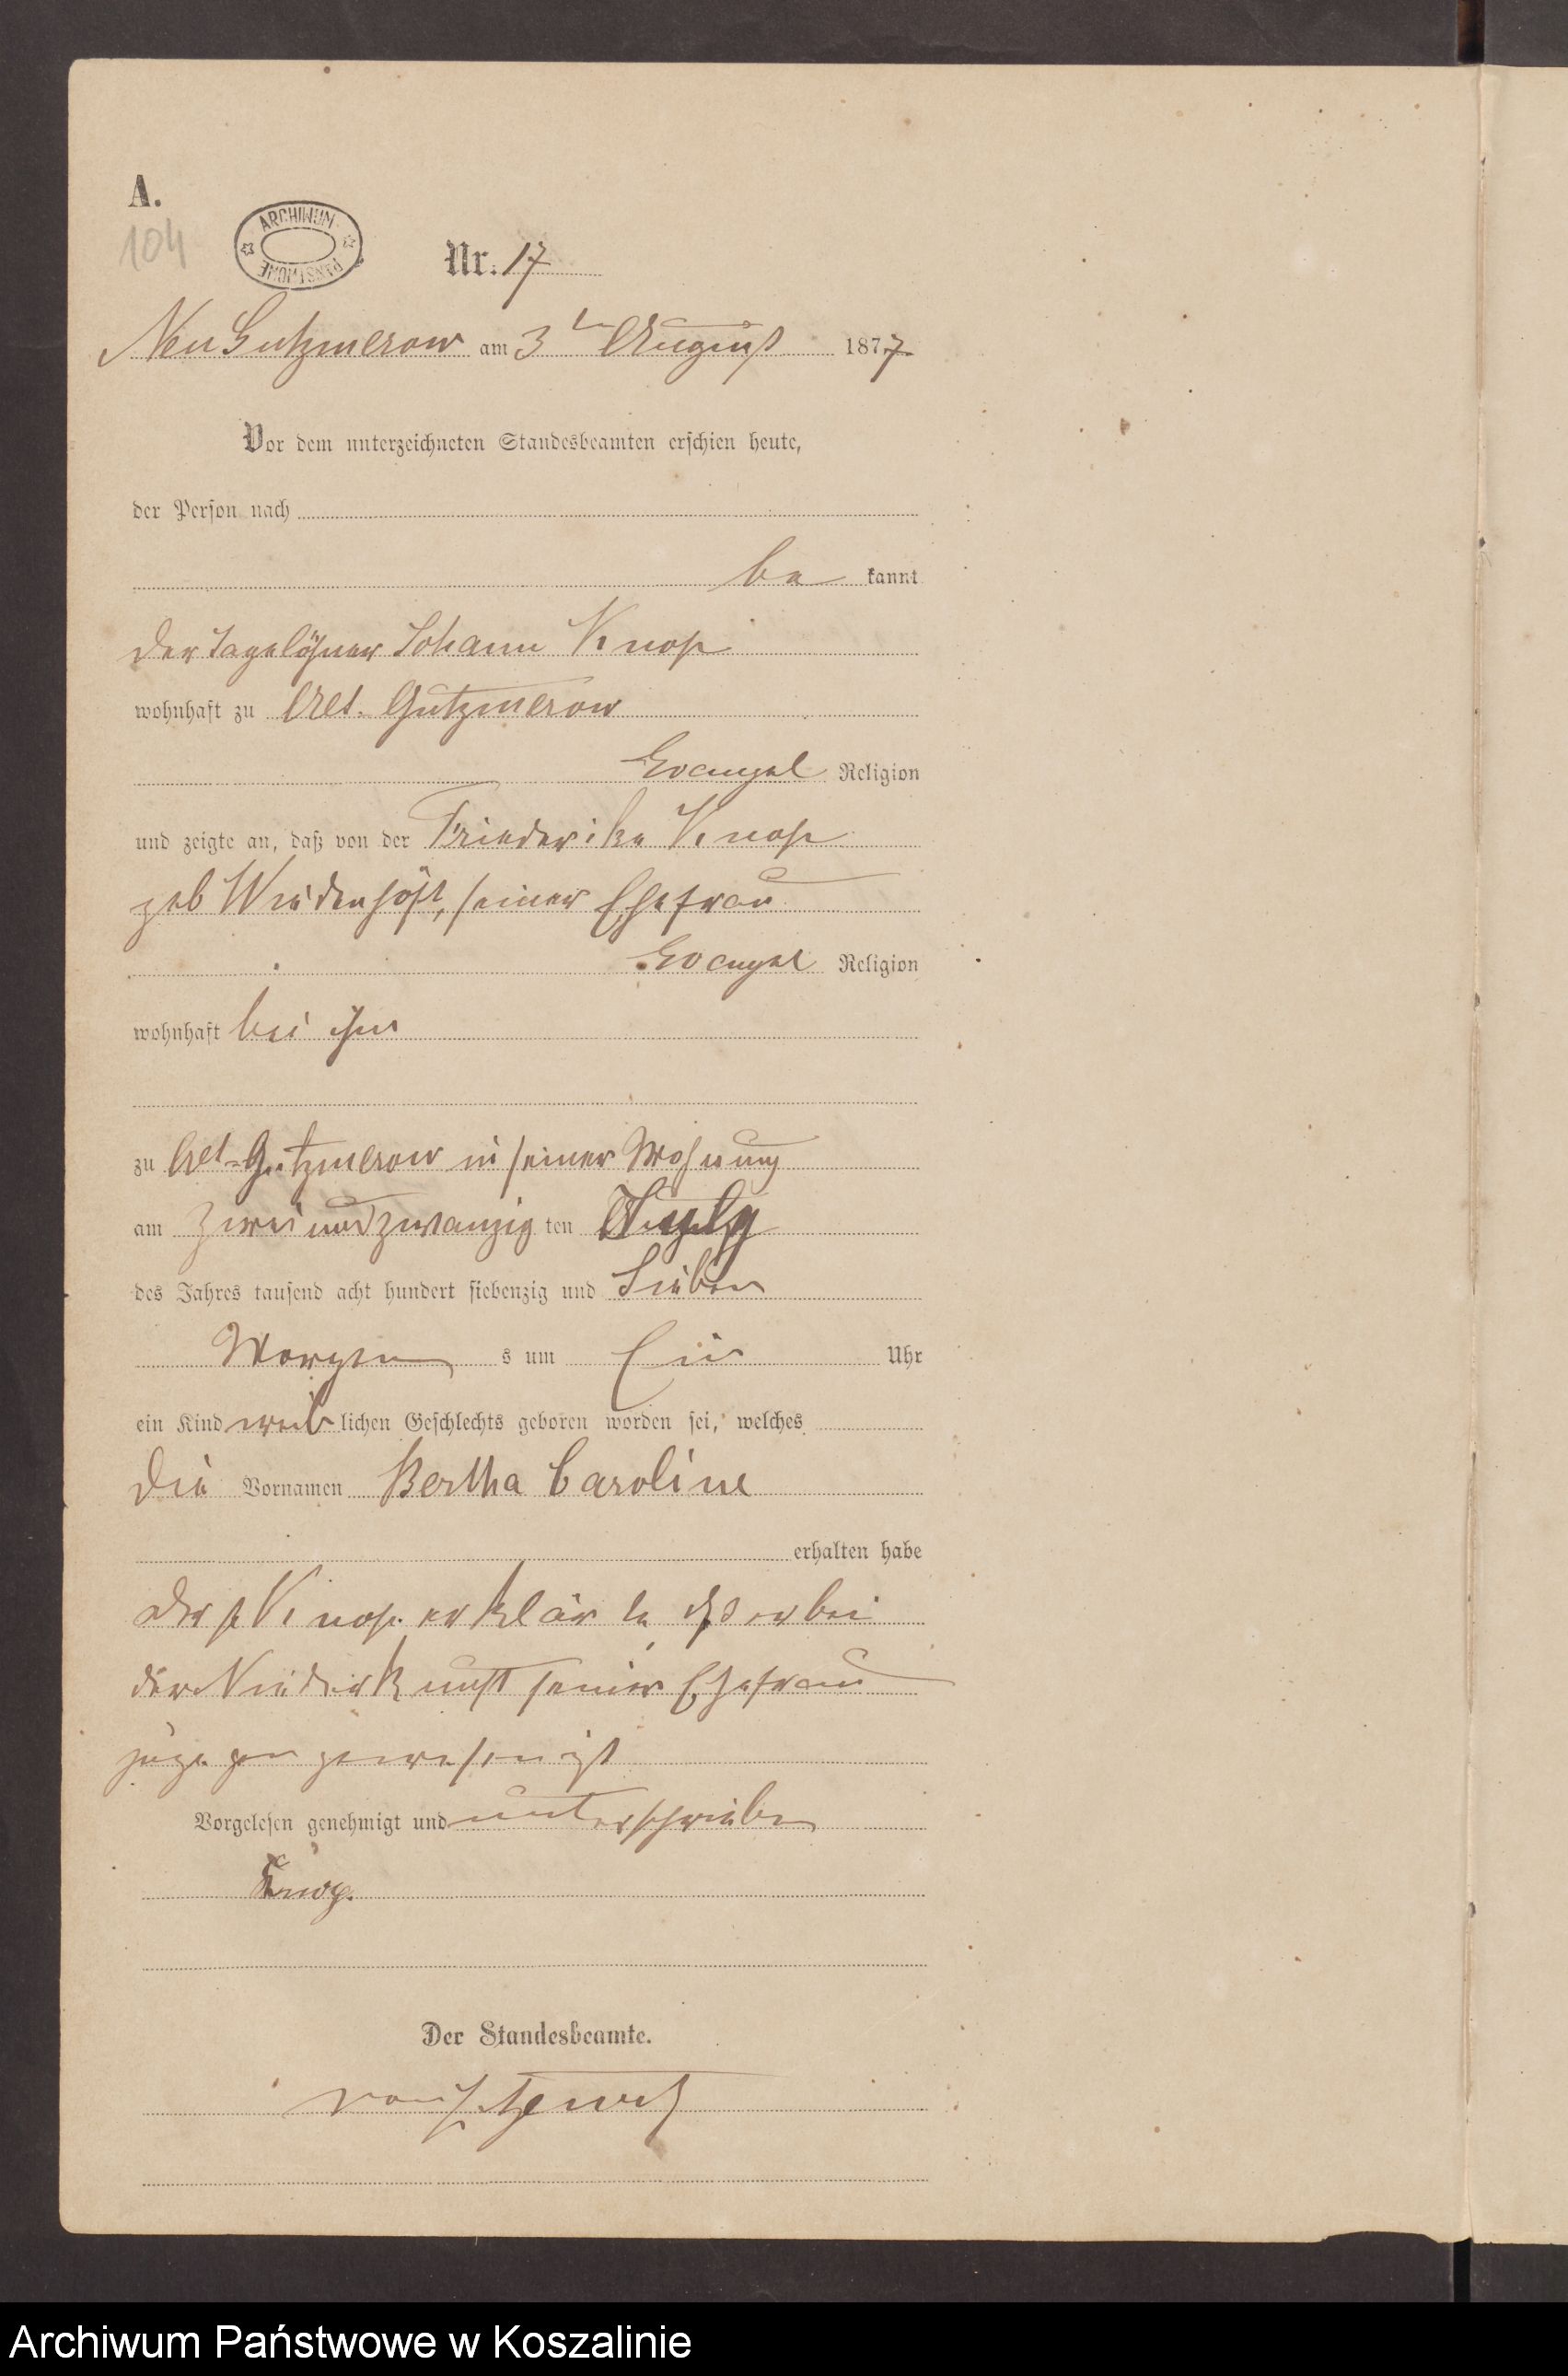 A.
104
ARCHIWUM PAŃSTWOWE
Nr. 17
Neu Gutzmerow am 3ten August 1877
Vor dem unterzeichneten Standesbeamten erschien heute,
der Person nach
be kannt
der Tagelöhner Johann Knop
wohnhaft zu Alt. Gutzmerow
Evangel Religion
und zeigte an, daß von der Friederike Knop
geb seiner Ehefrau
Evangel Religion
wohnhaft bei ihm
zu Alt-Gutzmerow in seiner Wohnung
am zwei und zwanzig ten
des Jahres tausend acht hundert siebenzig und Sieben
Morgen s um Ein Uhr
ein Kind weib lichen Geschlechts geboren worden sei, welches
die Vornamen Bertha Caroline
erhalten habe
der p Knop. erklärte daß er bei
der Niederkunft seiner Ehefrau
zugegen gewesen ist
Vorgelesen genehmigt und unterschrieben
Knop.
Der Standesbeamte.
von
Archiwum Państwowe w Koszalinie